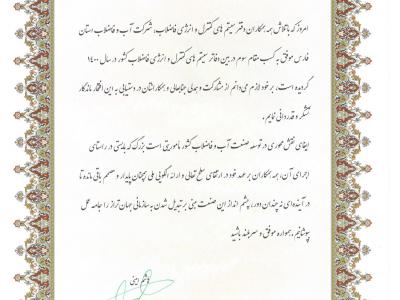 امروز که با تلاش همه همکاران دفتر سیستم های کنترل و انرژی فاضلاب، شرکت آب و فاضلاب استان
فارس موفق به کسب مقام سوم در بین دفاتر سیستم های کنترل و انرژی فاضلاب کشور در سال ۱۴۰۰
گردیده است، بر خود لازم می دانم از مشارکت و همدلی جنابعالی و همکارانتان در دستیابی به این افتخار ماندگار
تشکر و قدردانی نمایم.
ایفای نقش محوری در توسعه صنعت آب و فاضلاب کشور مأموریتی است بزرگ که بایستی در راستای
اجرای آن، همه همکاران بر عهد خود در ارتقای سطح تعالی و ارائه الگویی ملی همچنان پایدار و مصمم باقی مانده تا
در آینده ای نه چندان دور، چشم انداز این صنعت مبنی بر تبدیل شدن به سازمانی جهان تراز را جامه عمل
بپوشانیم. همواره موفق و سربلند باشید
هاشم امینی